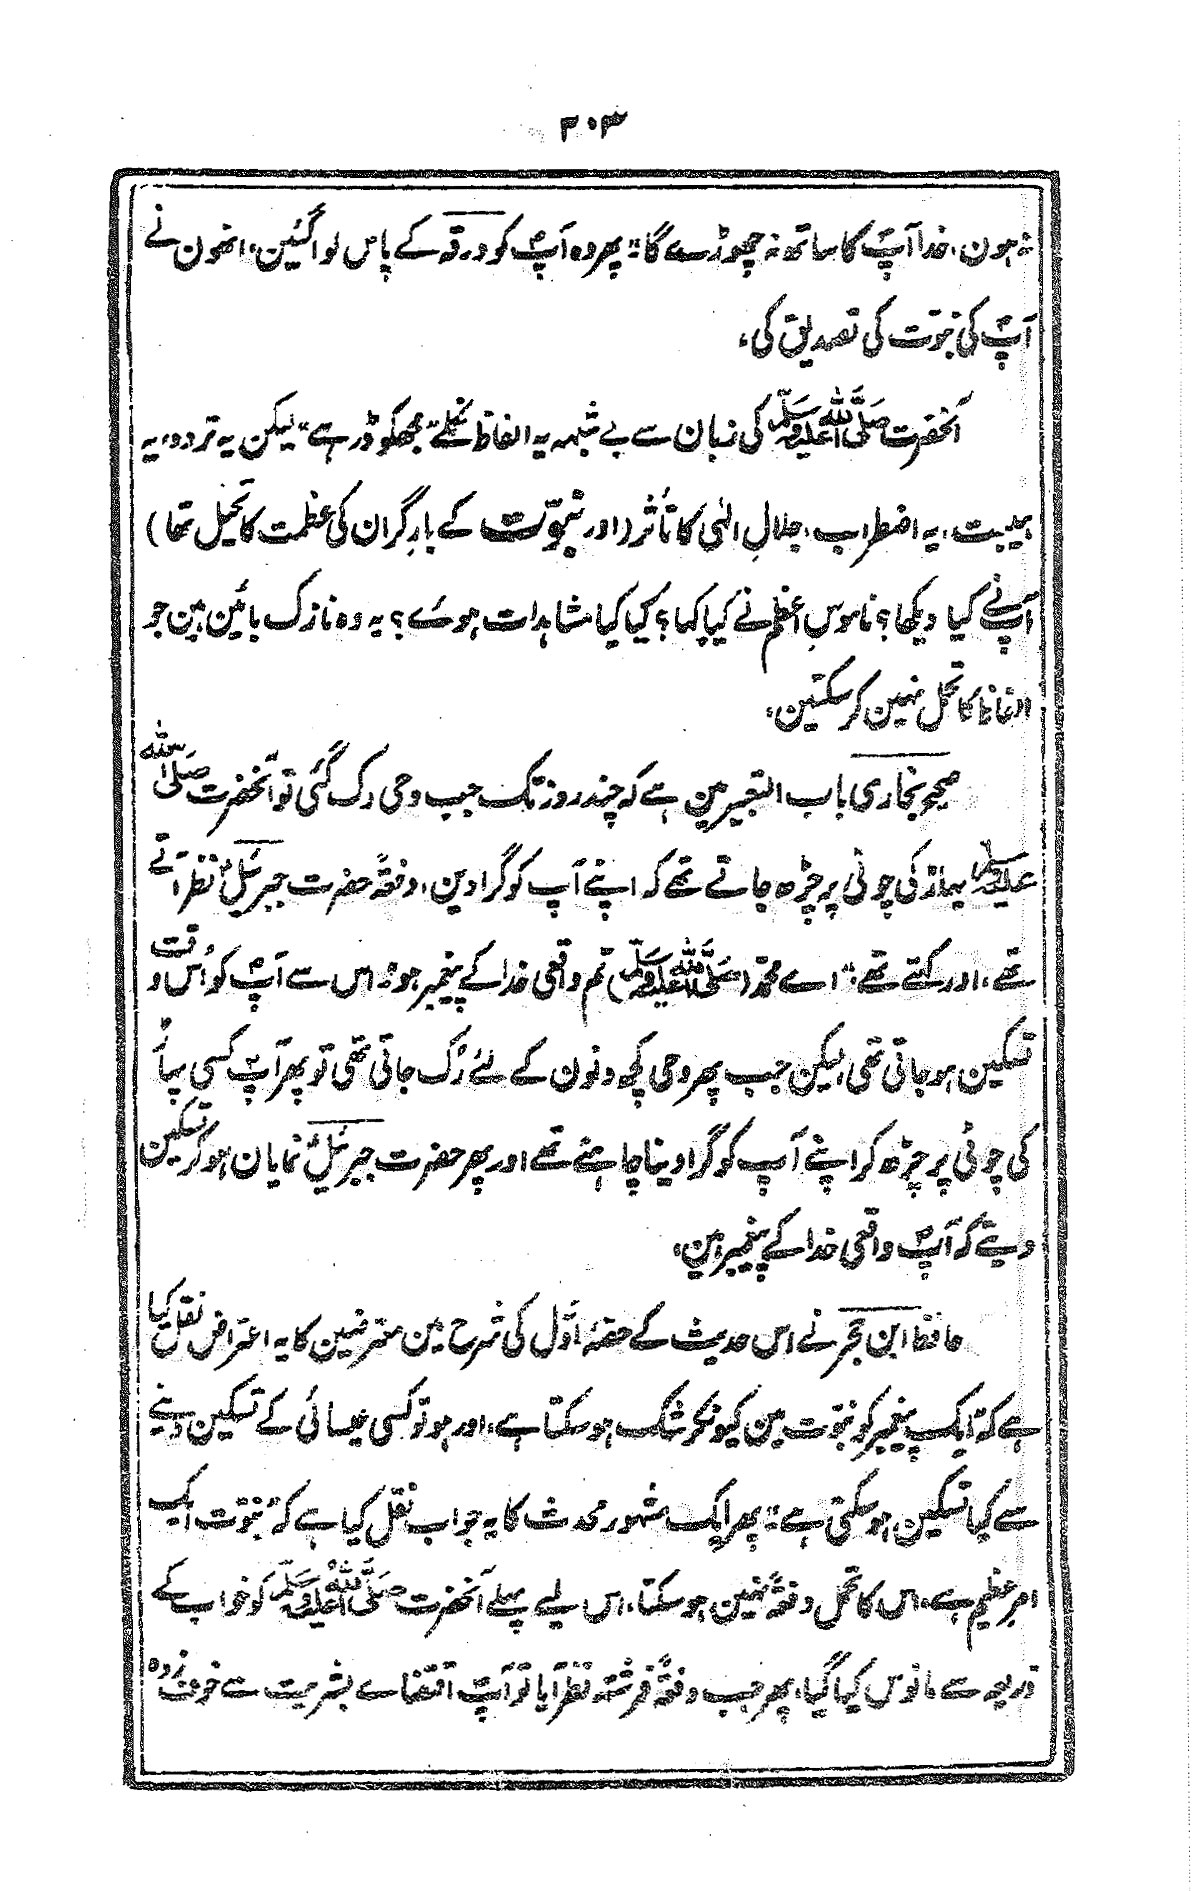 ۲۰۳
نہ ہون، خدا آپؐ کا ساتھ نہ چھوڑے گا"؛ پھر وہ آپؐ کو ورقہ کے پاس لوا گئین، انھون نے
آپؐ کی نبوّت کی تصدیق کی،
آنحضرت صَلَّی اللہُ عَلَیْہِ وَسَلَّم کی زبان سے بے شبہہ یہ الفاظ نکلے "مجھکو ڈر ہے" لیکن یہ تردد، یہ
ہیبت، یہ اضطراب، جلالِ الٰہی کا تأثر (اور نبوّت کے بارِگران کی عظمت کا تخیل تھا)
آپؐ نے کیا دیکھا؟ ناموسِ اعظم نے کیا کہا؟ کیا کیا مشاہدات ہوے؟ یہ وہ نازک باتین ہین جو
الفاظ کا تحمل نہین کر سکتین،
صحیح بخاری باب التعبیر مین ہے کہ چند روز تک جب وحی رک گئی تو آنحضرت صَلَّی اللہُ
عَلَیْہِ وَسَلَّم پہاڑ کی چوٹی پر چڑھ جاتے تھے کہ اپنے آپ کو گرا دین، دفعۃً حضرت جبرئیلؑ نظر آتے
تھے، اور کہتے تھے، "اے محمدؐ (صَلَّی اللہُ عَلَیْہِ وَسَلَّم) تم واقعی خدا کے پیغمبر ہو"؛ اس سے آپؐ کو اُس وقت
تسکین ہو جاتی تھی، لیکن جب پھر وحی کچھ دنون کے لئے رُک جاتی تھی تو پھر آپؐ کسی پہاڑ
کی چوٹی پر چڑھ کر اپنے آپ کو گرا دینا چاہتے تھے اور پھر حضرت جبرئیلؑ نمایان ہو کر تسکین
دیتے کہ آپؐ واقعی خدا کے پیغمبر ہین،
حافظ ابن حجر نے اس حدیث کے حصّۂ اوّل کی شرح مین معترضین کا یہ اعتراض نقل کیا
ہے کہ "ایک پیغمبر کو نبوّت مین کیونکر شک ہو سکتا ہے، اور ہو تو کسی عیسائی کے تسکین دینے
سے کیا تسکین ہو سکتی ہے"؛ پھر ایک مشہور محدث کا یہ جواب نقل کیا ہے کہ "نبوّت ایک
امرِ عظیم ہے، اس کا تحمل دفعۃً نہین ہو سکتا، اس لیے پہلے آنحضرت صَلَّی اللہُ عَلَیْہِ وَسَلَّم کو خواب کے
ذریعہ سے مانوس کیا گیا، پھر جب دفعۃً فرشتہ نظر آیا تو آپؐ اقتضاے بشریت سے خوف زدہ